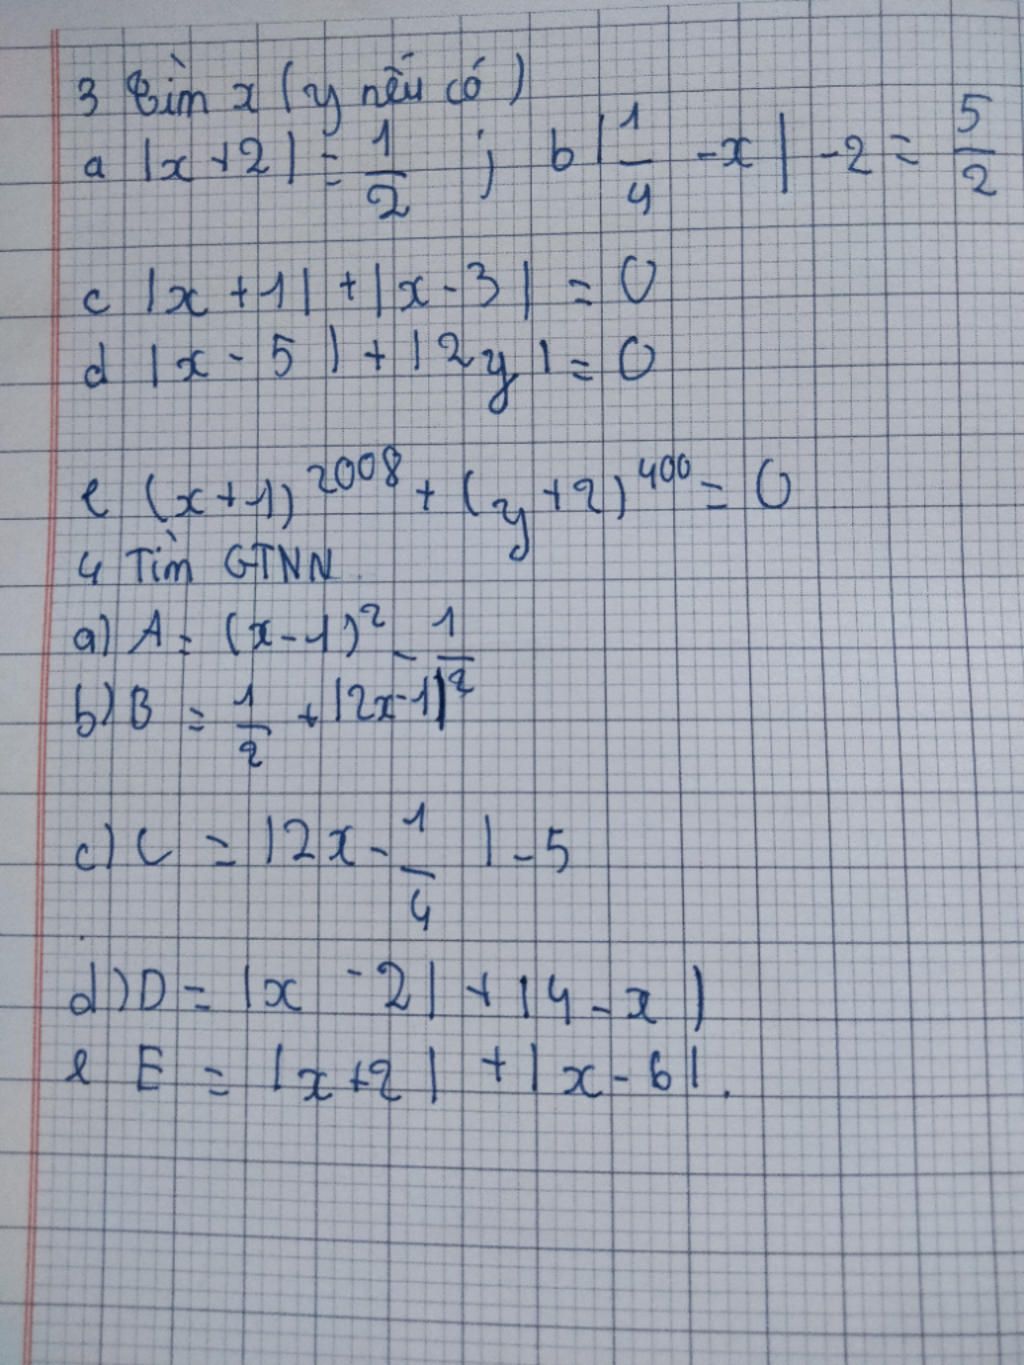 3 Tìm x (y nếu có)
a |x+2| = 1/2 ; b |1/4 - x| - 2 = 5/2
c |x+1| + |x-3| = 0
d |x-5| + |2y| = 0
e (x+1)^2008 + (y+2)^400 = 0
4 Tìm GTNN.
a) A = (x-1)^2 - 1/2
b) B = 1/2 + |2x-1|
c) C = |2x - 1/4| - 5
d) D = |x-2| + |4-x|
e E = |x+2| + |x-6|.